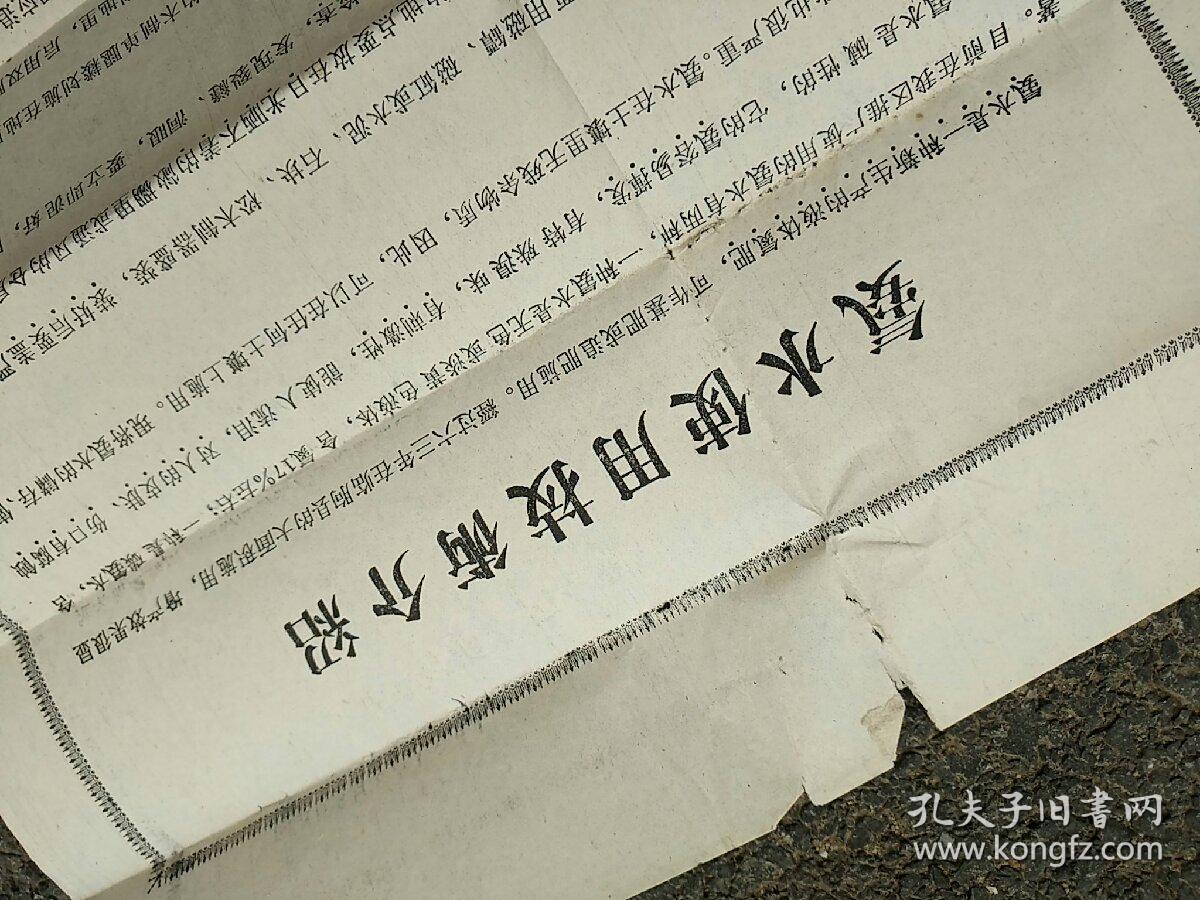 氨水使用技術介紹
氨水是一种新生产的液体氮肥,可作基肥或追肥施用。經过六三年在临朐县的大面积施用,增产效果很显
著。
目前在我区推广使用的氨水有两种,一种氨水是无色或淡黄色液体,含氮17%左右;一种是碳氨水,含
氨水是碱性的,它的氨容易揮发,有特殊溴味,有刺激性,能使人流泪,对人的皮肤、伤口有腐蚀
也很严重。氨水在土壤里无残余物质,因此,可以在任何土壤上施用。現将氨水的儲存、使
用磁罈、磁缸或水泥、石块、松木制器盛装,装好后要盖严
的地点要放在日光晒不着的敞棚里或通风的仓
检查,发現裂縫、洞眼,要立即泥好,
孔夫子旧書网
www.kongfz.com